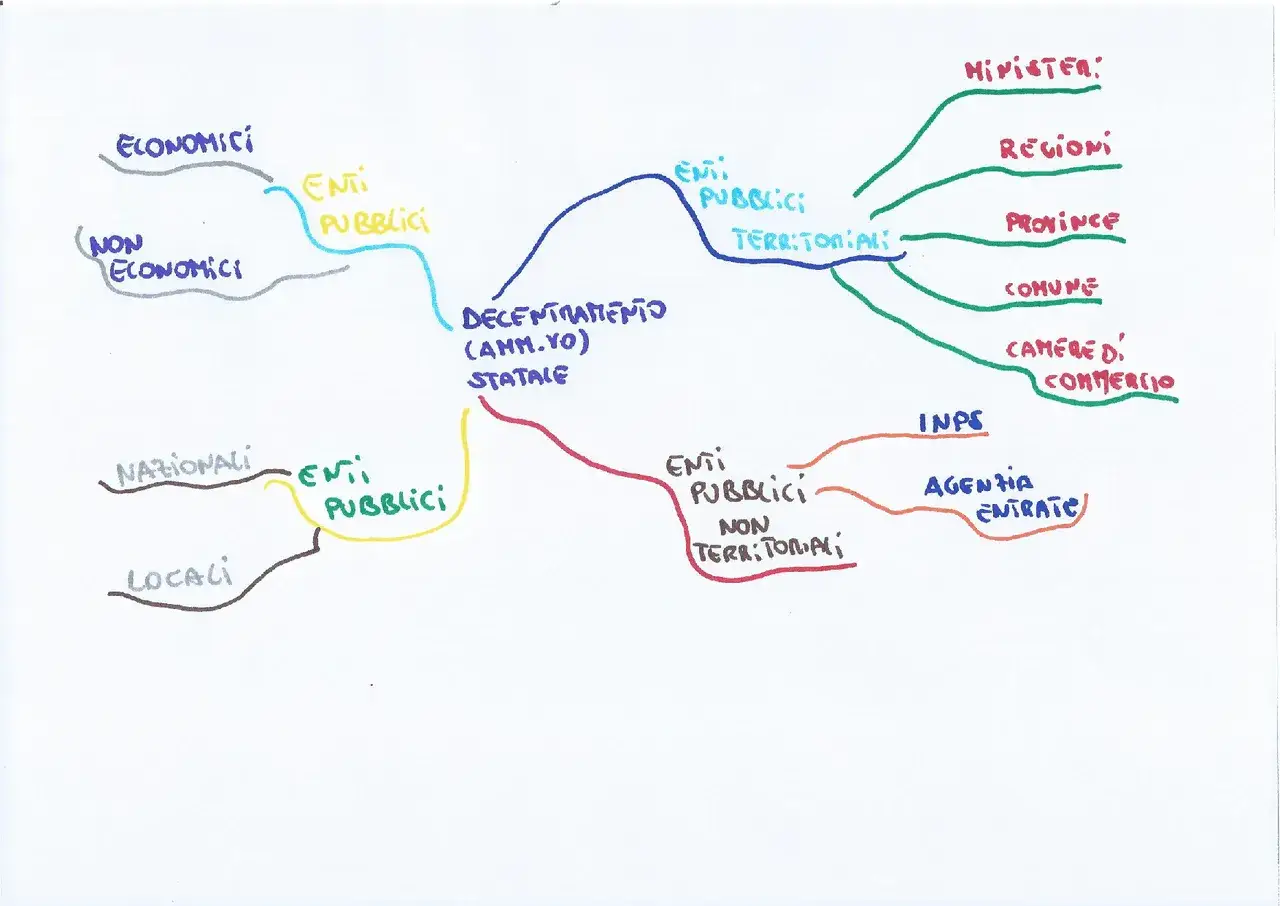 DECENTRAMENTO
(AMM.VO)
STATALE
ENTI
PUBBLICI
TERRITORIALI
MINISTERI
REGIONI
PROVINCE
COMUNE
CAMERE DI
COMMERCIO
ENTI
PUBBLICI
NON
TERRITORIALI
INPS
AGENZIA
ENTRATE
ENTI
PUBBLICI
NAZIONALI
LOCALI
ENTI
PUBBLICI
ECONOMICI
NON
ECONOMICI